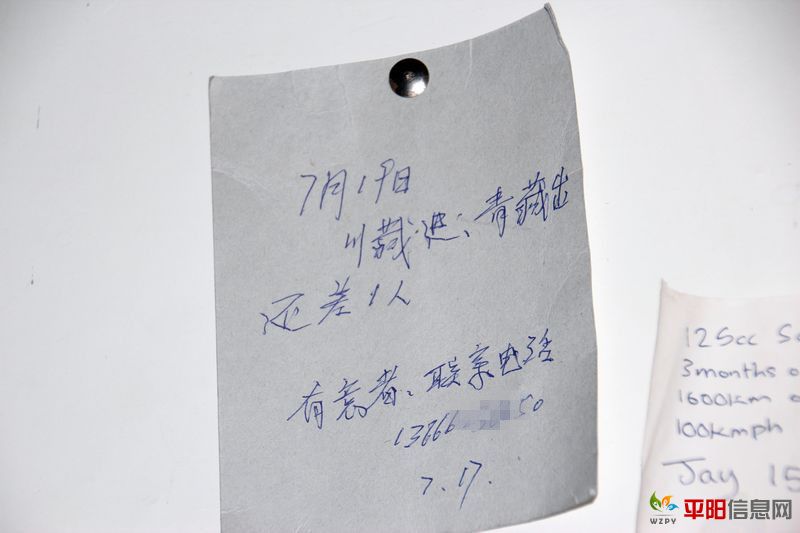 7月19日
川藏进、青藏出
还差1人
有意者、联系电话
13666 50
7.17.
125cc
3 months
1600km
100kmph
Jay 15
WZPY 平阳信息网